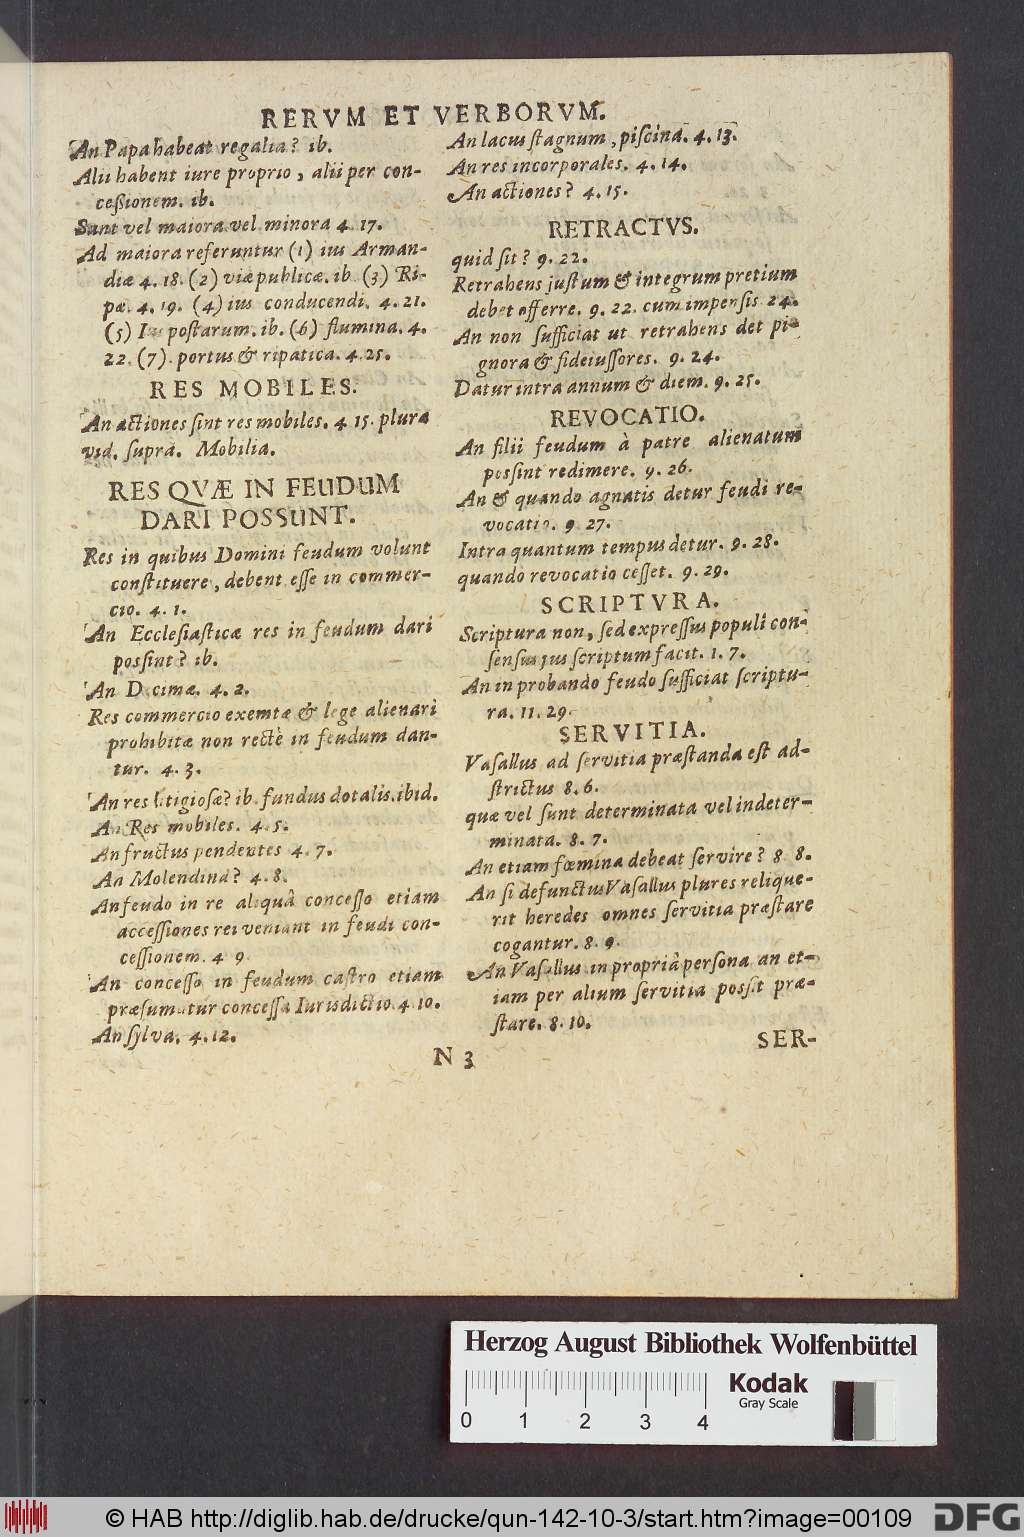 RERVM ET VERBORVM.
An Papa habeat regalia? ib.
Alii habent iure proprio, alii per con-
ceſſionem. ib.
Sunt vel maiora vel minora 4. 17.
Ad maiora referuntur (1) ius Arman-
diæ 4. 18. (2) viæ publicæ. ib. (3) Ri-
pæ. 4. 19. (4) ius conducendi. 4. 21.
(5) Ius poſtarum. ib. (6) flumina. 4.
22. (7). portus & ripatica. 4. 25.
RES MOBILES.
An actiones ſint res mobiles. 4. 15. plura
vid. ſupra. Mobilia.
RES QVÆ IN FEUDUM
DARI POSSUNT.
Res in quibus Domini feudum volunt
conſtituere, debent eſſe in commer-
cio. 4. 1.
An Eccleſiaſticæ res in feudum dari
poſſint? ib.
An Decimæ. 4. 2.
Res commercio exemtæ & lege alienari
prohibitæ non rectè in feudum dan-
tur. 4. 3.
An res litigioſæ? ib. fundus dotalis. ibid.
An Res mobiles. 4. 5.
An fructus pendentes 4. 7.
An Molendina? 4. 8.
An feudo in re aliquâ conceſſo etiam
acceſſiones rei veniant in feudi con-
ceſſionem. 4 9.
An conceſſo in feudum caſtro etiam
præſumatur conceſſa Iurisdictio. 4 10.
An ſylva. 4. 12.
An lacus ſtagnum, piſcina. 4. 13.
An res incorporales. 4. 14.
An actiones? 4. 15.
RETRACTVS.
quid ſit? 9. 22.
Retrahens juſtum & integrum pretium
debet offerre. 9. 22. cum impenſis 24.
An non ſufficiat ut retrahens det pi-
gnora & fideiuſſores. 9. 24.
Datur intra annum & diem. 9. 25.
REVOCATIO.
An filii feudum à patre alienatum
poſſint redimere. 9. 26.
An & quando agnatis detur feudi re-
vocatio. 9 27.
Intra quantum tempus detur. 9. 28.
quando revocatio ceſſet. 9. 29.
SCRIPTVRA.
Scriptura non, ſed expreſſus populi con-
ſenſus jus ſcriptum facit. 1. 7.
An in probando feudo ſufficiat ſcriptu-
ra. 11. 29.
SERVITIA.
Vaſallus ad ſervitia præſtanda eſt ad-
ſtrictus 8. 6.
quæ vel ſunt determinata vel indeter-
minata. 8. 7.
An etiam fœmina debeat ſervire? 8. 8.
An ſi defunctus Vaſallus plures relique-
rit heredes omnes ſervitia præſtare
cogantur. 8. 9.
An Vaſallus in propriâ perſona an et-
iam per alium ſervitia poſſit præ-
ſtare. 8. 10.
N 3
SER-
Herzog August Bibliothek Wolfenbüttel
Kodak
Gray Scale
0 1 2 3 4
© HAB http://diglib.hab.de/drucke/qun-142-10-3/start.htm?image=00109
DFG